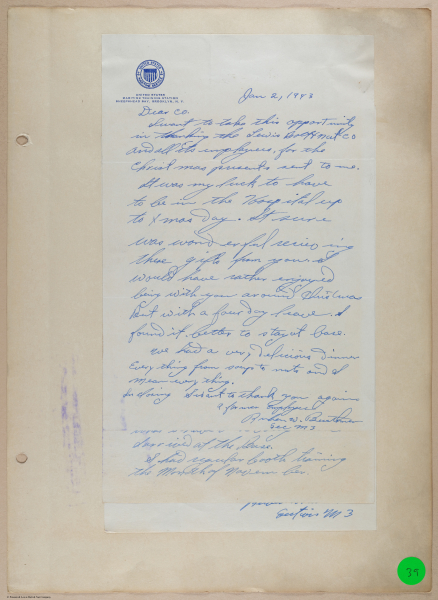 UNITED STATES
MARITIME TRAINING STATION
SHEEPSHEAD BAY, BROOKLYN, N. Y.
Jan 2, 1943
Dear Co.
I want to take this opportunity
in thanking the Lewis Bolt & Nut Co
and all the employees, for the
Christmas presents sent to me.
It was my luck to have
to be in the Hospital up
to Xmas Day. It sure
was wonderful receiving
these gifts from you. I
would have rather enjoyed
being with you around Christmas
but with a four day leave. I
found it better to stay at base.
We had a very delicious dinner
Every thing from soup to nuts and I
mean every thing.
In closing I wish to thank you again
a former Employee
Sec M3
at the Base.
I had regular booth training
the Month of November.
Section M 3
39